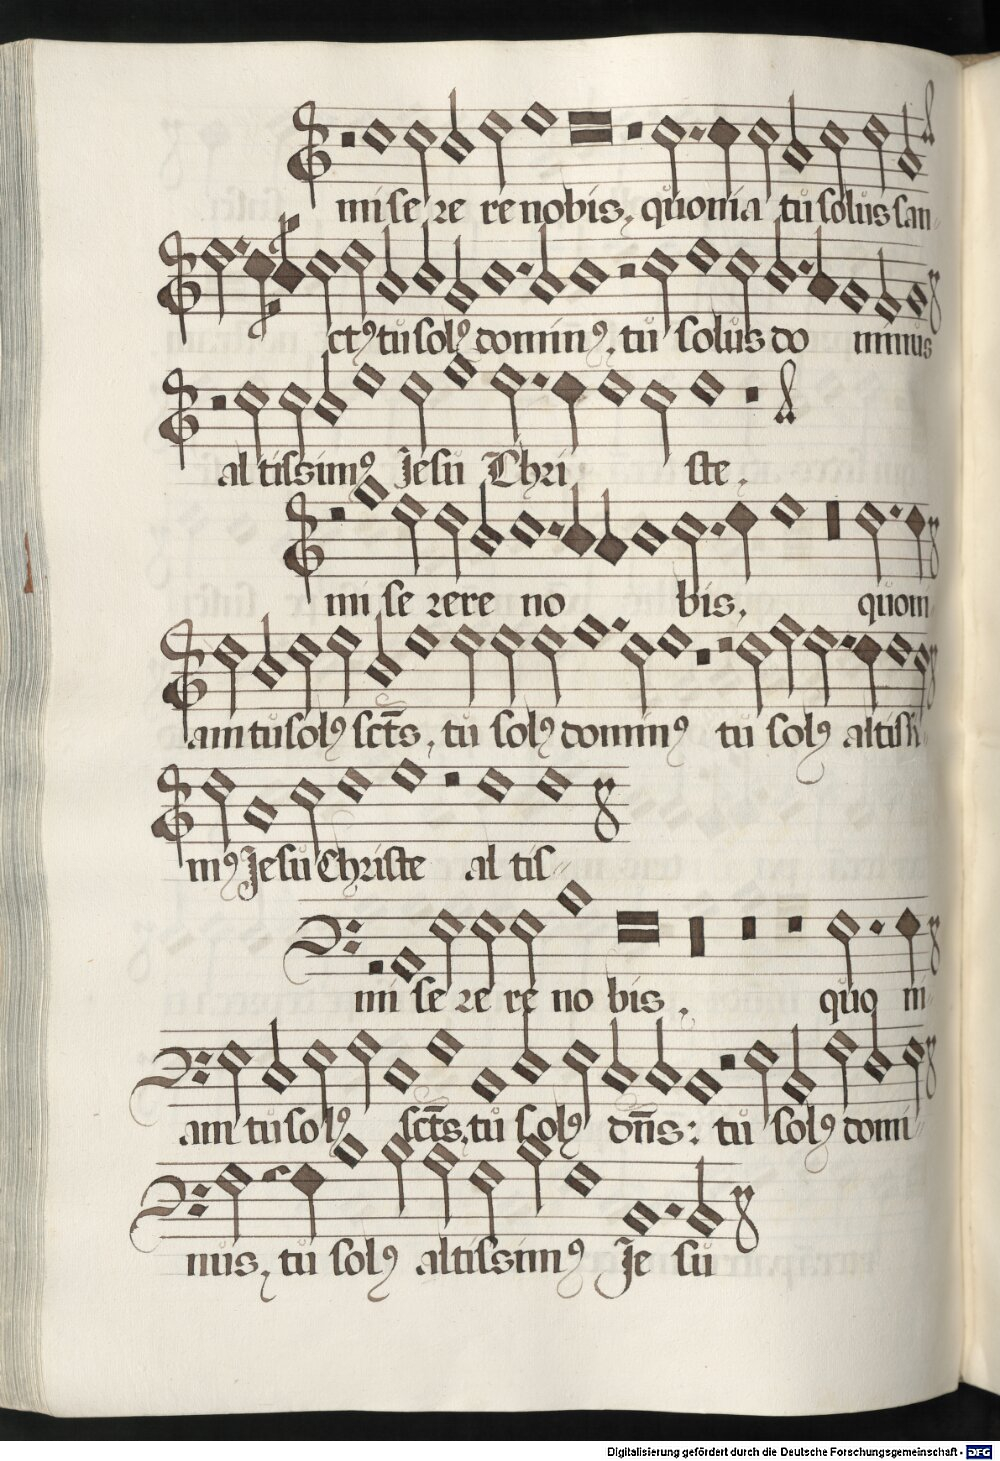 mise re re nobis, quonia tů solůs san-
ctꝰ tů solꝰ dominꝰ, tů solůs do minus
altissimꝰ Jesů Chri ste.
mi se rere no bis, quoni-
am tů solꝰ scts̄, tů solꝰ dominꝰ tů solꝰ altissi-
mꝰ Jesů Christe al tis-
mi se re re no bis, quo ni-
am tů solꝰ scts̄, tů solꝰ dn̄s: tů solꝰ domi-
nůs, tů solꝰ altissimꝰ Je sů
Digitalisierung gefördert durch die Deutsche Forschungsgemeinschaft - DFG